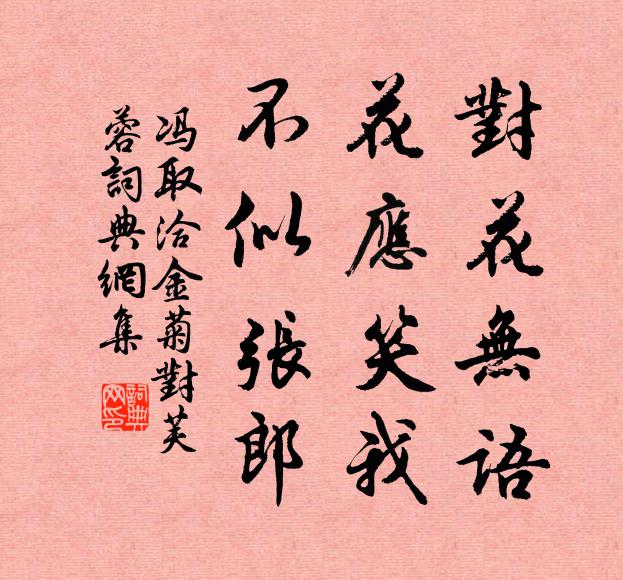 對花無語
花應笑我
不似張郎
冯取洽金菊對芙
蓉詞典網集
詞典
网印